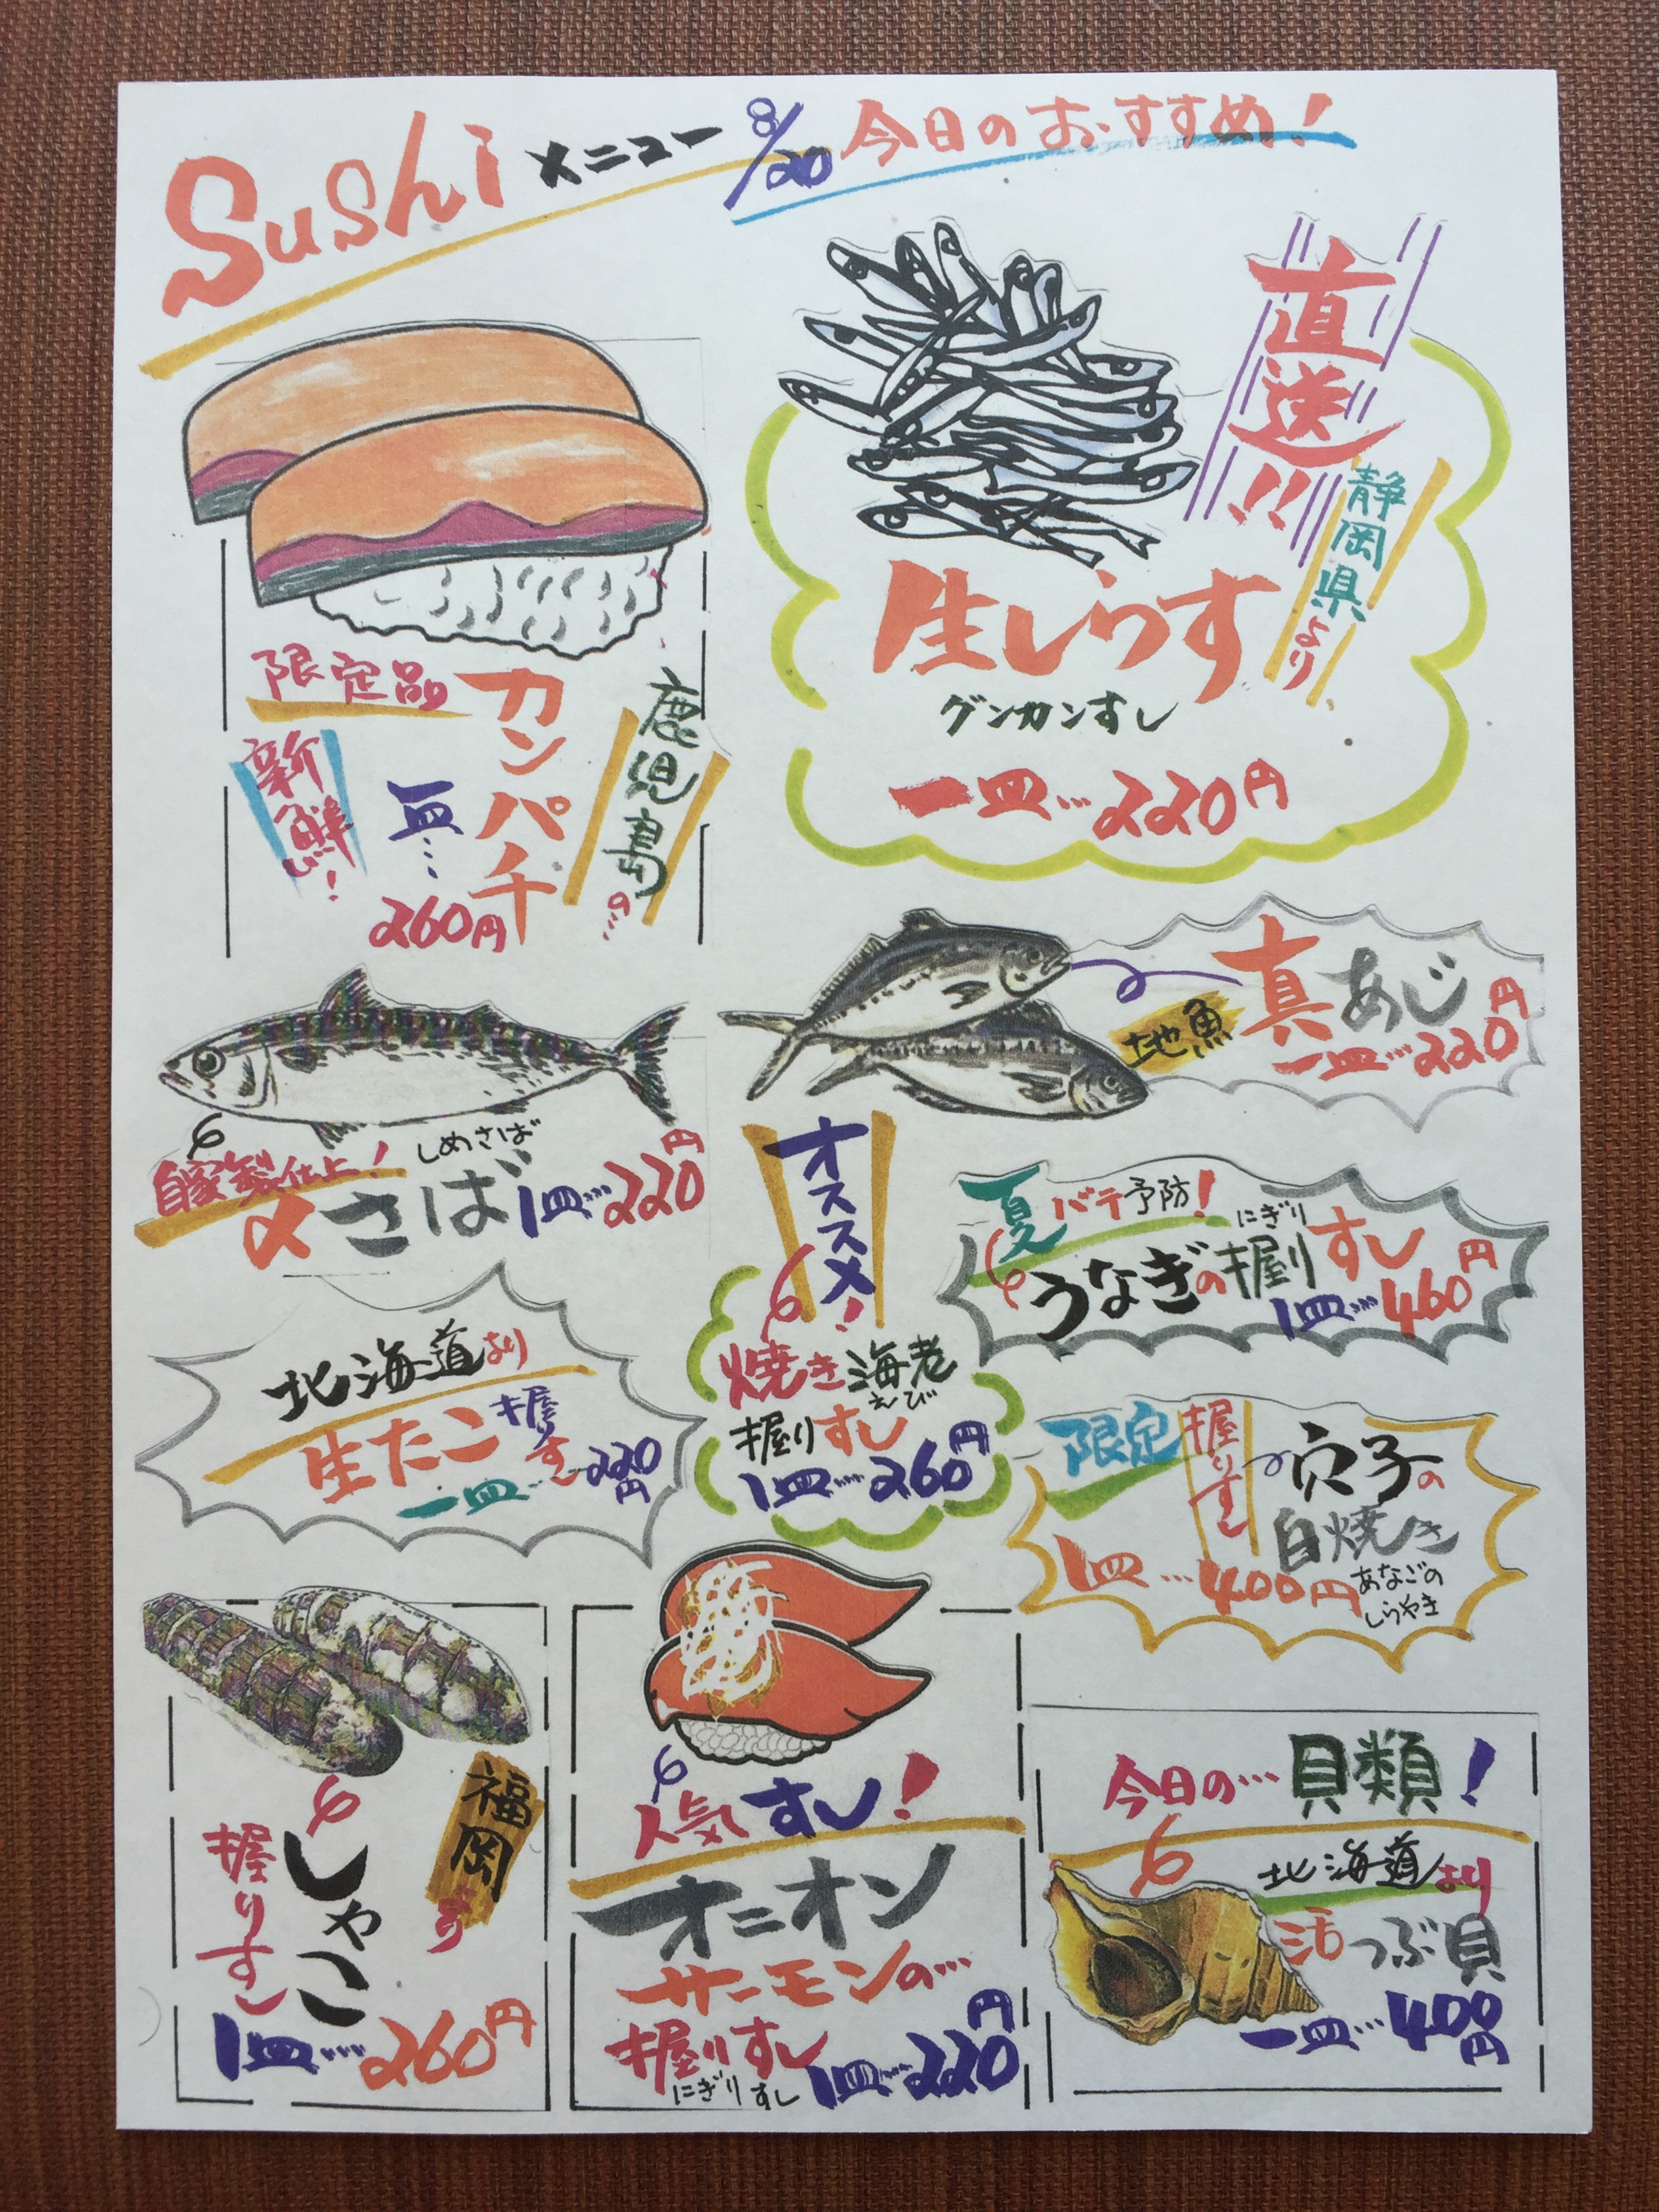 Sushi メニュー 8/20 今日のおすすめ!
直送!!
静岡県より
生しらす
グンカンすし
一皿…220円
限定品
新鮮!
鹿児島の…
カンパチ
一皿…
260円
地魚
真あじ
一皿…220円
自家製仕上!
しめさば
〆さば 1皿…220円
オススメ!
焼き海老
えび
握りすし
1皿…260円
夏バテ予防!
にぎり
うなぎの握りすし
1皿…460円
北海道より
生たこ握りすし
一皿…220円
限定
握りすし
穴子の
白焼き
あなごの
しらやき
1皿…400円
福岡より
しゃこ
握りすし
1皿…260円
人気すし!
オニオン
サーモンの…
握りすし
にぎりすし
1皿…220円
今日の…貝類!
北海道より
活つぶ貝
一皿…400円